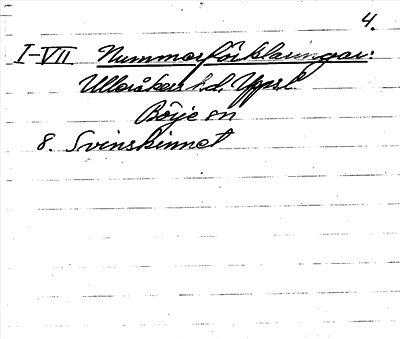 4.
I-VII Nummerförklaringar:
Ulleråkers h.d. Uppsl.
Börje sn
8. Svinskinnet